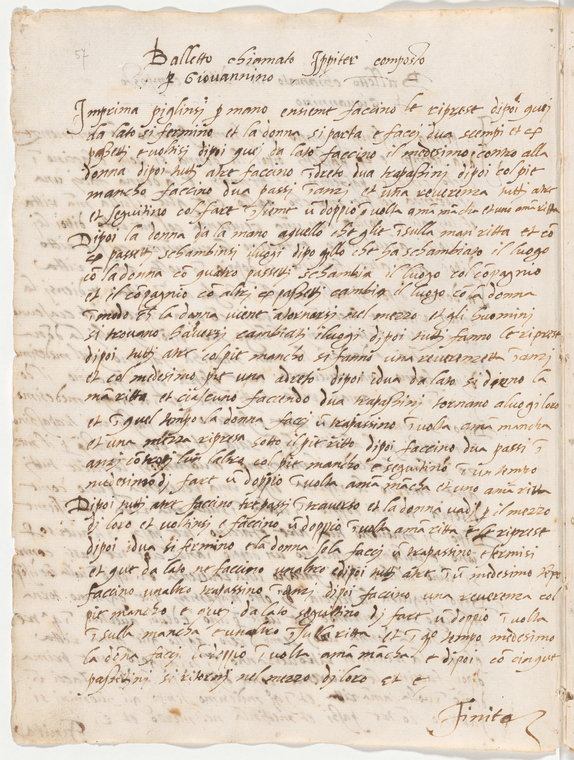 57
Balletto chiamato Ippiter composto
p Giovannino
Imprima piglinsi p mano ensieme faccino le riprese dipoi quej
da lato si fermino et la donna si parta e faccj dua scempi et
passetti e voltisi dipoi quei da lato faccino il medesimo contro alla
donna dipoi tuti a tre faccino idreto dua trapassinj dipoi col pie
mancho faccino dua passi inanzj et una reverenza tutti a tre
et seguitino col fare insieme ū doppio ī volta ama mācha et uno ama ritta
Dipoi la donna da la mano aquello che gliè ī sulla man ritta et cō
passetti schambinsi iluogi dipo qllo che ha schambiato il luogo
cō la donna cō quatro passetti schambia il luogo col cōpagnio
et il cōpagnio cō altrj passetti cambia il luogo cō la donna
ī modo la donna viene a tornarsi nel mezzo et gli huominj
si trovano havessi cambiati iluogi dipoi tuti fanno le riprese
dipoi tuti a tre col pie mancho si fanno una reverenzetta inanzj
et col medesimo pie una adreto dipoi idua da lato si donno la
ma ritta et ciascuno facendo dua trapassinj tornano aluogi loro
et ī quel tempo la donna faccj ū trapassino ī volta ama mancha
et una mezza ripresa sotto il pie ritto dipoi faccino dua passi
col pie mancho e seguitino ī un tempo
medesimo dj fare ū doppio ī volta ama mācha et uno amā ritta
Dipoi tuti a tre faccino tre passi ī traverso et la donna vadj p il mezzo
dj loro et voltinsi e faccino ū doppio ī volta amā ritta e le riprese
dipoi idua si fermino e la donna sola faccj ū trapassino e fermisi
et que da lato ne faccino unaltro edipoi tuti a tre ī ū medesimo
faccino unaltro trapassino īanzj dipoi faccino una reverenza col
pie mancho e quei da lato seguitino dj fare ū doppio ī volta
ī sulla mancha e unaltro ī sula ritta et ī qo tempo medesimo
la dōna faccj ū ī volta ama mācha e dipoi cō cinque
passettini si ritornj nel mezzo di loro et e
Finito